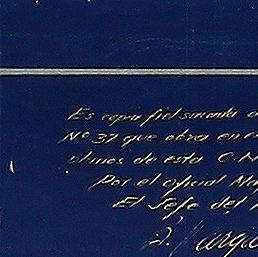 Es copia fiel sacada d
Nº 37 que obra en e
planos de esta C.N
Por el oficial Ma
El Jefe del